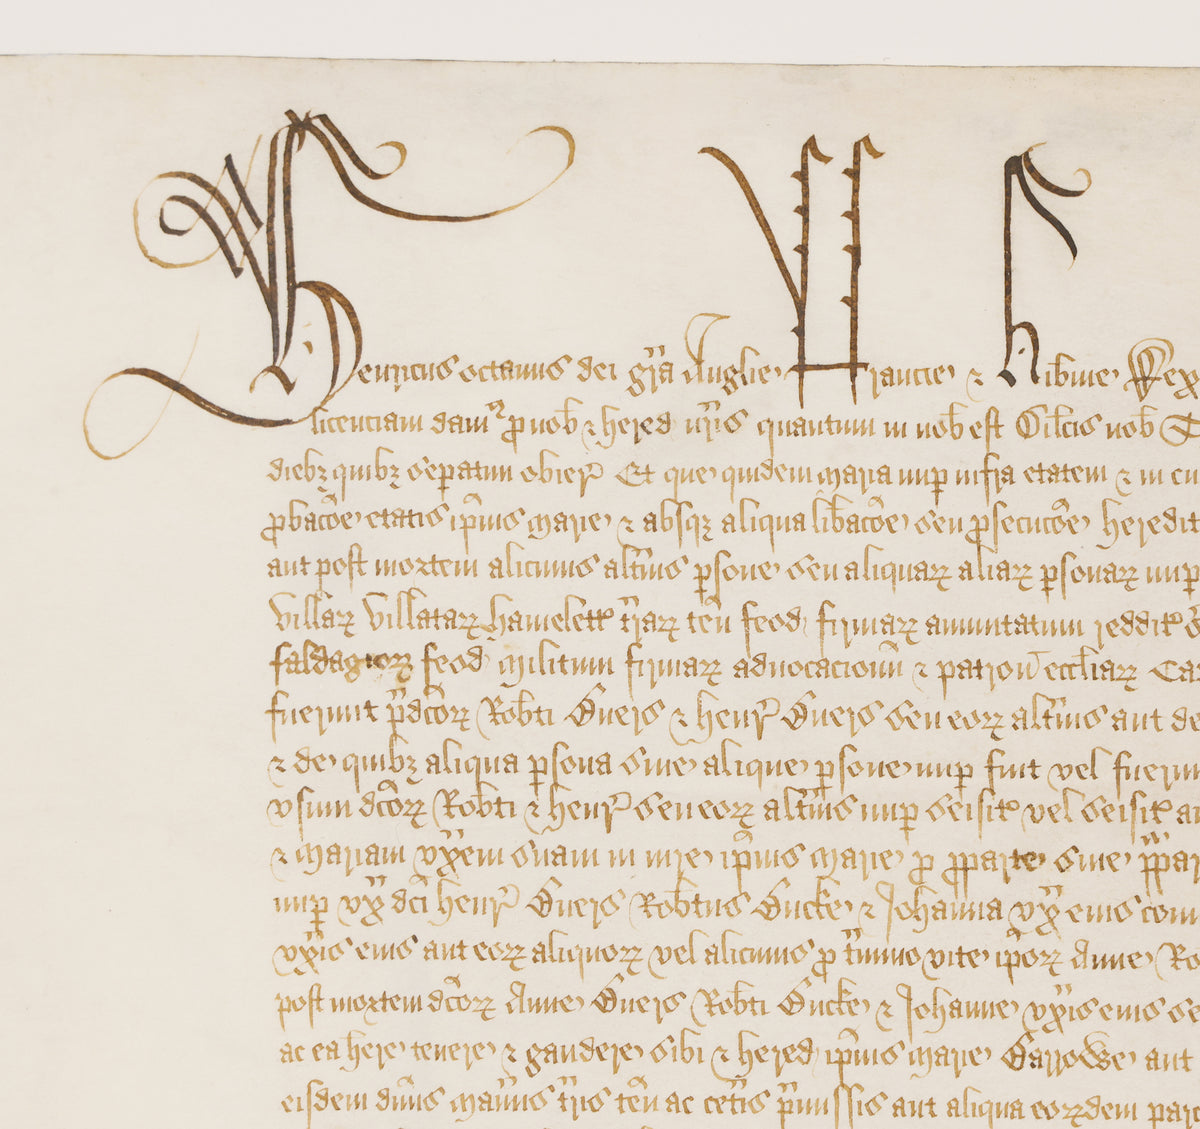 Henricus octauus dei gr̄a Anglie Francie & hib̄nie Rex
licenciam dam⁹ ꝓ nob̄ & hered nr̄is quantum in nob̄ est
dieb₃ quib₃ sepatim obier̄ Et que quidem Maria nuꝑ infra etatem & in
ꝓbac̄oe etatis ip̄ius Marie & absq₃ aliqua lib̄ac̄oe seu ꝓsecuc̄oe heredit
aut post mortem alicuius alt̄ius ꝑsone seu aliquaꝝ aliaꝝ ꝑsonaꝝ nuꝑ
villaꝝ villataꝝ hamelett̄ t̄raꝝ ten̄ feod firmaꝝ annuitatum reddit̄
faldagioꝝ feod militum firmaꝝ aduocacionū & patron̄ eccl̄iaꝝ
fuerunt p̄dc̄oꝝ Rob̄ti & henr̄ seu eoꝝ alt̄ius aut de
& de quib₃ aliqua ꝑsona siue alique ꝑsone nuꝑ fuit vel fuerun
vsum dc̄oꝝ Rob̄ti & henr̄ seu eoꝝ alt̄ius nuꝑ seisit̄ vel seisit̄
& Mariam vx̄em suam in iure ip̄ius Marie ꝓ ꝓparte siue
nuꝑ vx̄ dc̄i henr̄ Rob̄tus & Johanna vx̄ eius
vx̄is eius aut eoꝝ aliquoꝝ vel alicuius ꝓ t̄mino vite ip̄oꝝ Anne
post mortem dc̄oꝝ Anne Rob̄ti & Johanne vx̄is eius
ac ea here tenere & gaudere sibi & hered ip̄ius Marie aut
eisdem dn̄iis Man̄iis t̄ris ten̄ ac cet̄is p̄missis aut aliqua eoꝝdem